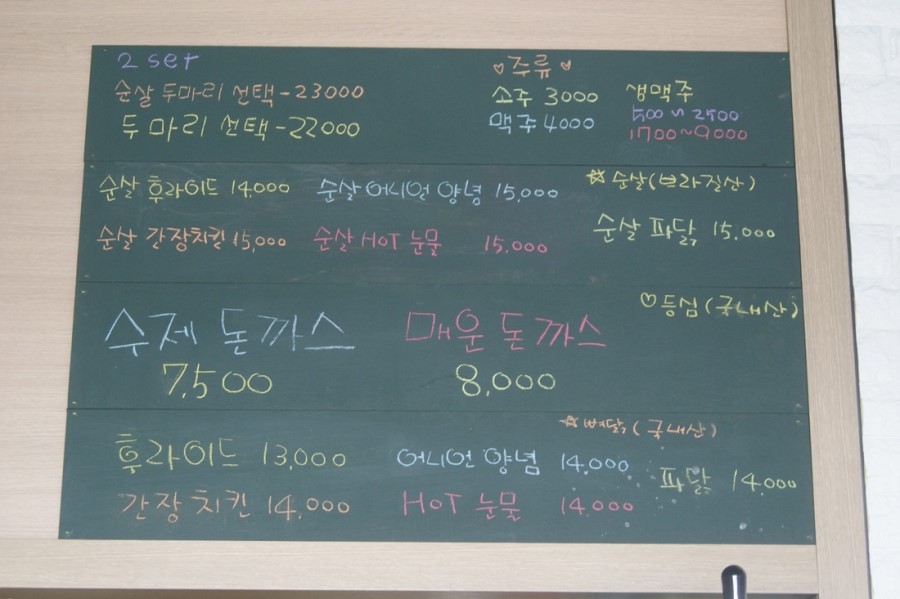 2 set
순살 두마리 선택-23000
두 마리 선택-22000
♡주류♡
소주 3000
맥주 4000
생맥주
500~2500
1700~9000
순살 후라이드 14,000
순살 어니언 양념 15,000
☆순살(브라질산)
순살 간장치킨 15,000
순살 HOT 눈물 15,000
순살 파닭 15,000
수제 돈까스
7,500
매운 돈까스
8,000
♡등심(국내산)
☆뼈닭(국내산)
후라이드 13,000
어니언 양념 14,000
파닭 14,000
간장 치킨 14,000
HOT 눈물 14,000